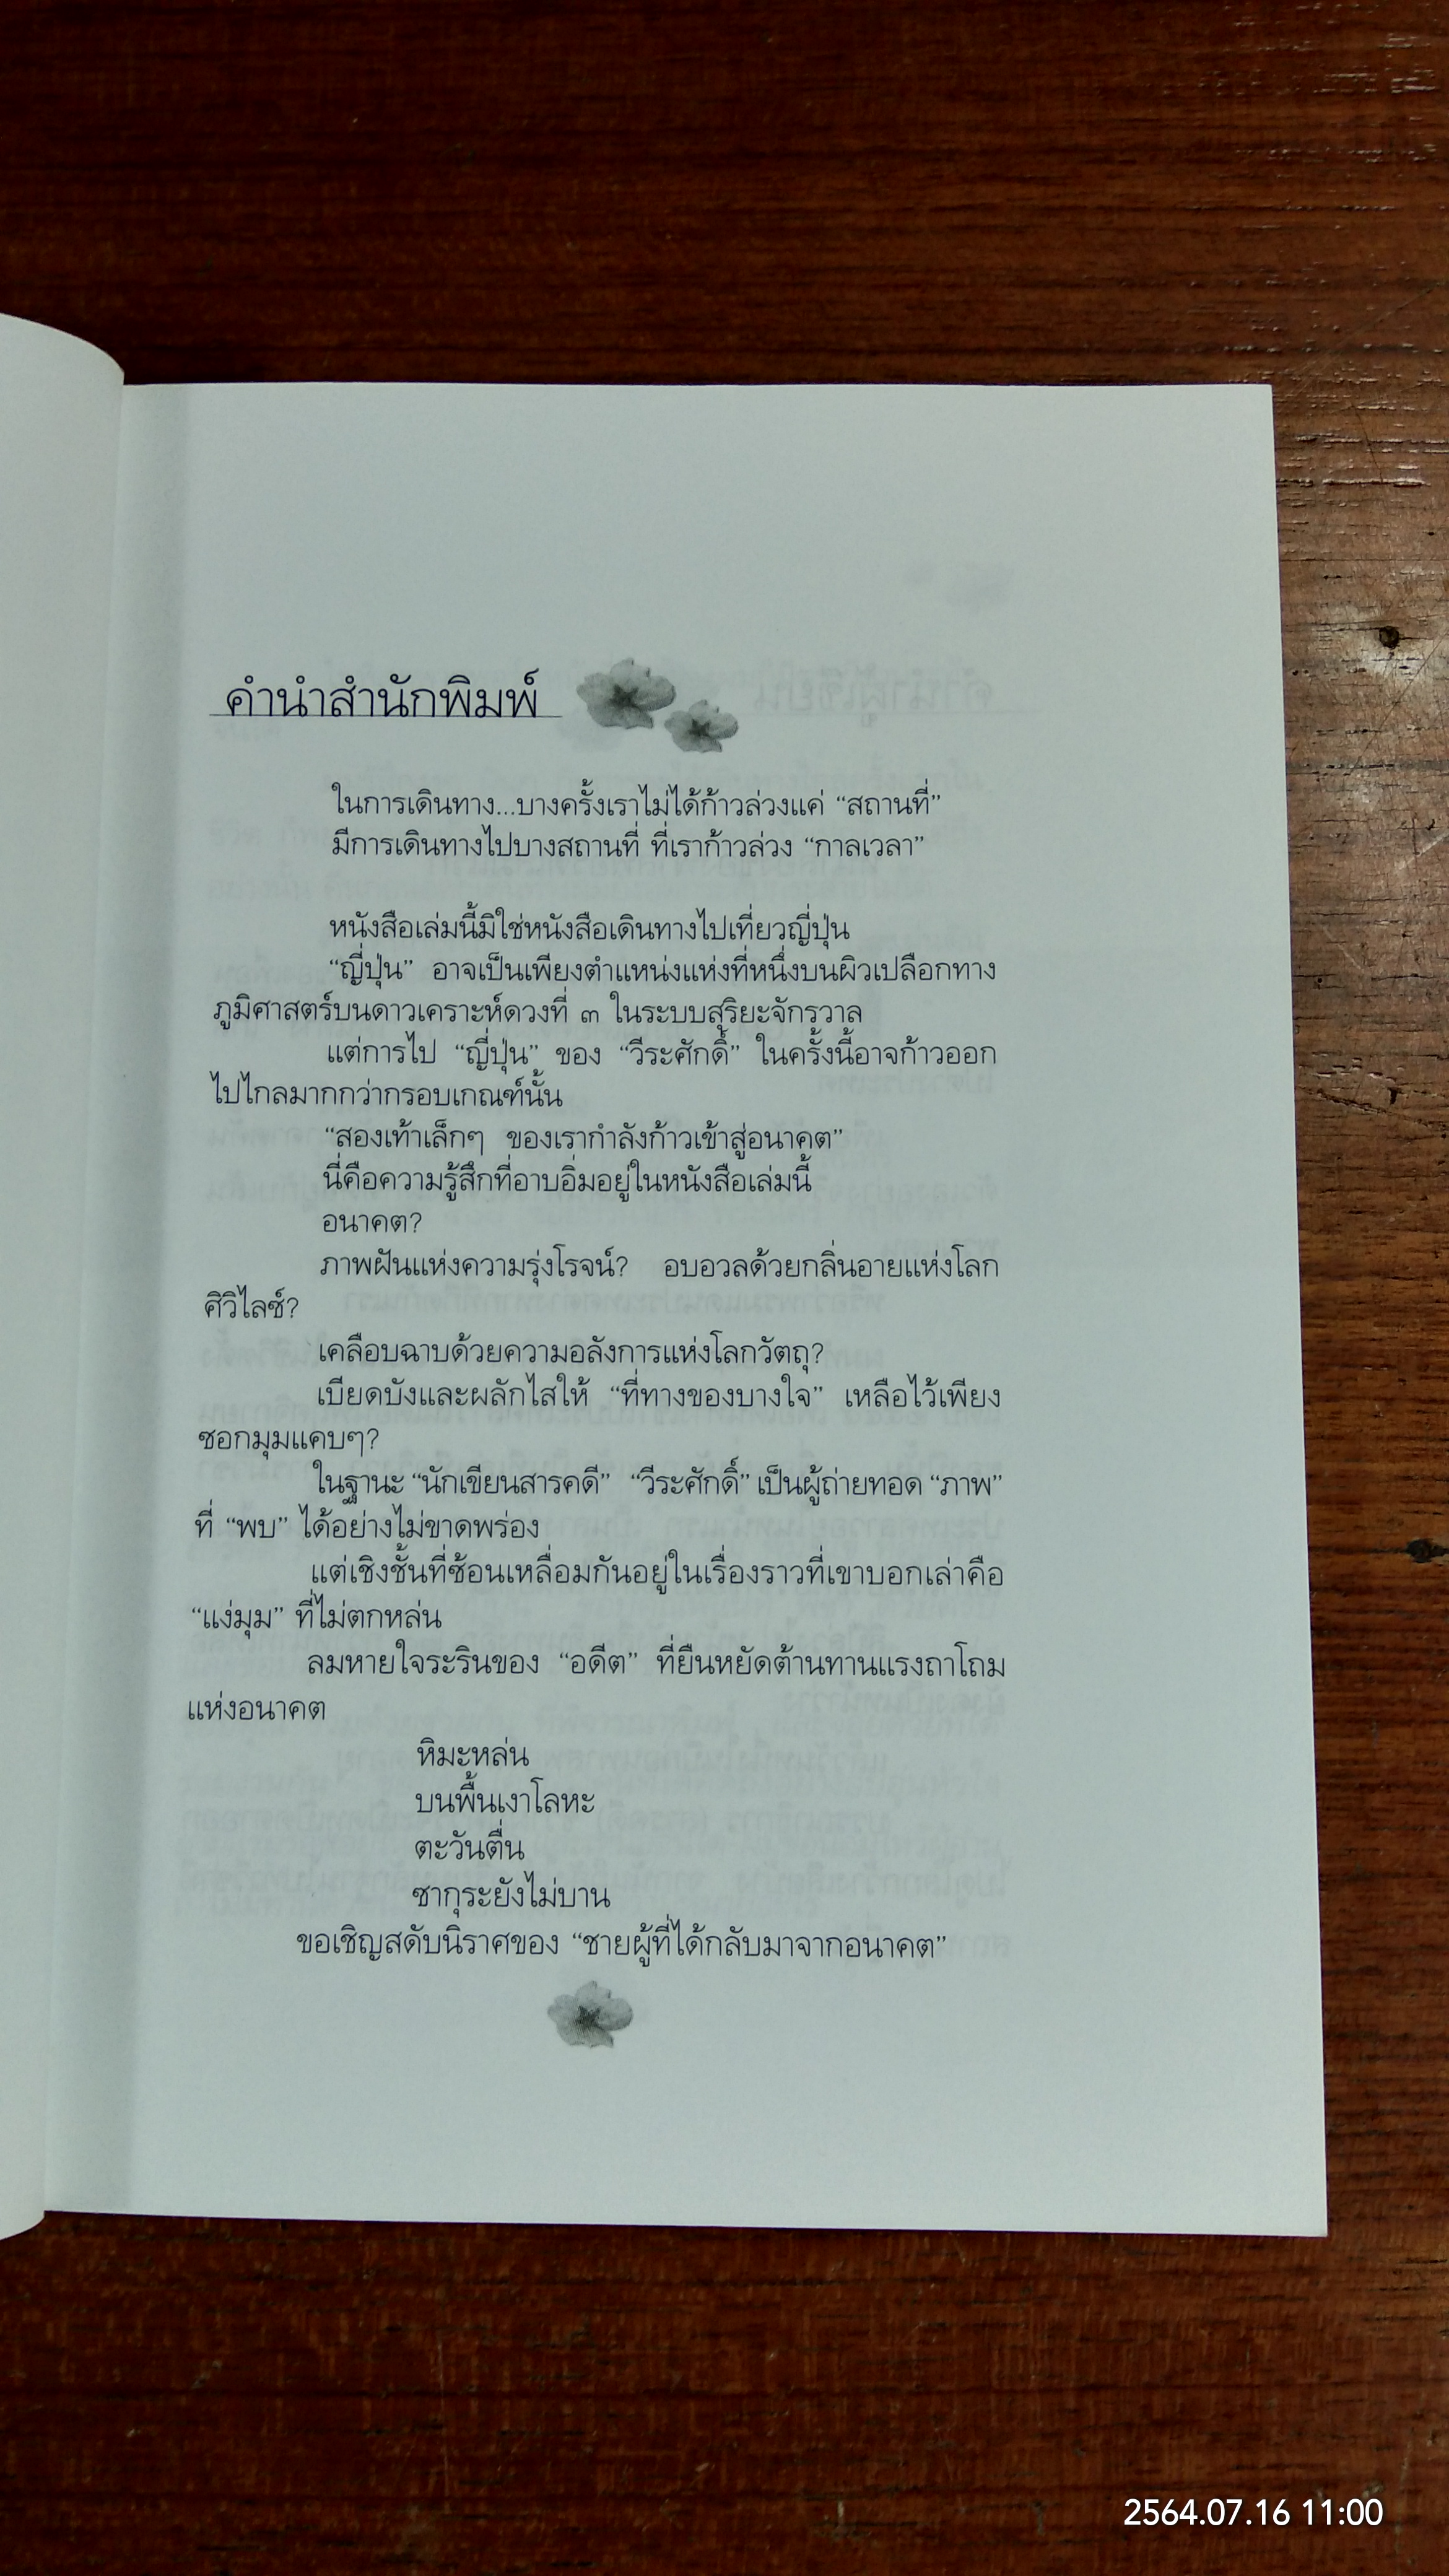 คำนำสำนักพิมพ์
ในการเดินทาง...บางครั้งเราไม่ได้ก้าวล่วงแค่ “สถานที่”
มีการเดินทางไปบางสถานที่ ที่เราก้าวล่วง “กาลเวลา”
หนังสือเล่มนี้มิใช่หนังสือเดินทางไปเที่ยวญี่ปุ่น
“ญี่ปุ่น” อาจเป็นเพียงตำแหน่งแห่งที่หนึ่งบนผิวเปลือกทาง
ภูมิศาสตร์บนดาวเคราะห์ดวงที่ ๓ ในระบบสุริยะจักรวาล
แต่การไป “ญี่ปุ่น” ของ “วีระศักดิ์” ในครั้งนี้อาจก้าวออก
ไปไกลมากกว่ากรอบเกณฑ์นั้น
“สองเท้าเล็กๆ ของเรากำลังก้าวเข้าสู่อนาคต”
นี่คือความรู้สึกที่อาบอิ่มอยู่ในหนังสือเล่มนี้
อนาคต?
ภาพฝันแห่งความรุ่งโรจน์? อบอวลด้วยกลิ่นอายแห่งโลก
ศิวิไลซ์?
เคลือบฉาบด้วยความอลังการแห่งโลกวัตถุ?
เบียดบังและผลักไสให้ “ที่ทางของบางใจ” เหลือไว้เพียง
ซอกมุมแคบๆ?
ในฐานะ “นักเขียนสารคดี” “วีระศักดิ์” เป็นผู้ถ่ายทอด “ภาพ”
ที่ “พบ” ได้อย่างไม่ขาดพร่อง
แต่เชิงชั้นที่ซ้อนเหลื่อมกันอยู่ในเรื่องราวที่เขาบอกเล่าคือ
“แง่มุม” ที่ไม่ตกหล่น
ลมหายใจระรินของ “อดีต” ที่ยืนหยัดต้านทานแรงถาโถม
แห่งอนาคต
หิมะหล่น
บนพื้นเงาโลหะ
ตะวันตื่น
ซากุระยังไม่บาน
ขอเชิญสดับนิราศของ “ชายผู้ที่ได้กลับมาจากอนาคต”
2564.07.16 11:00